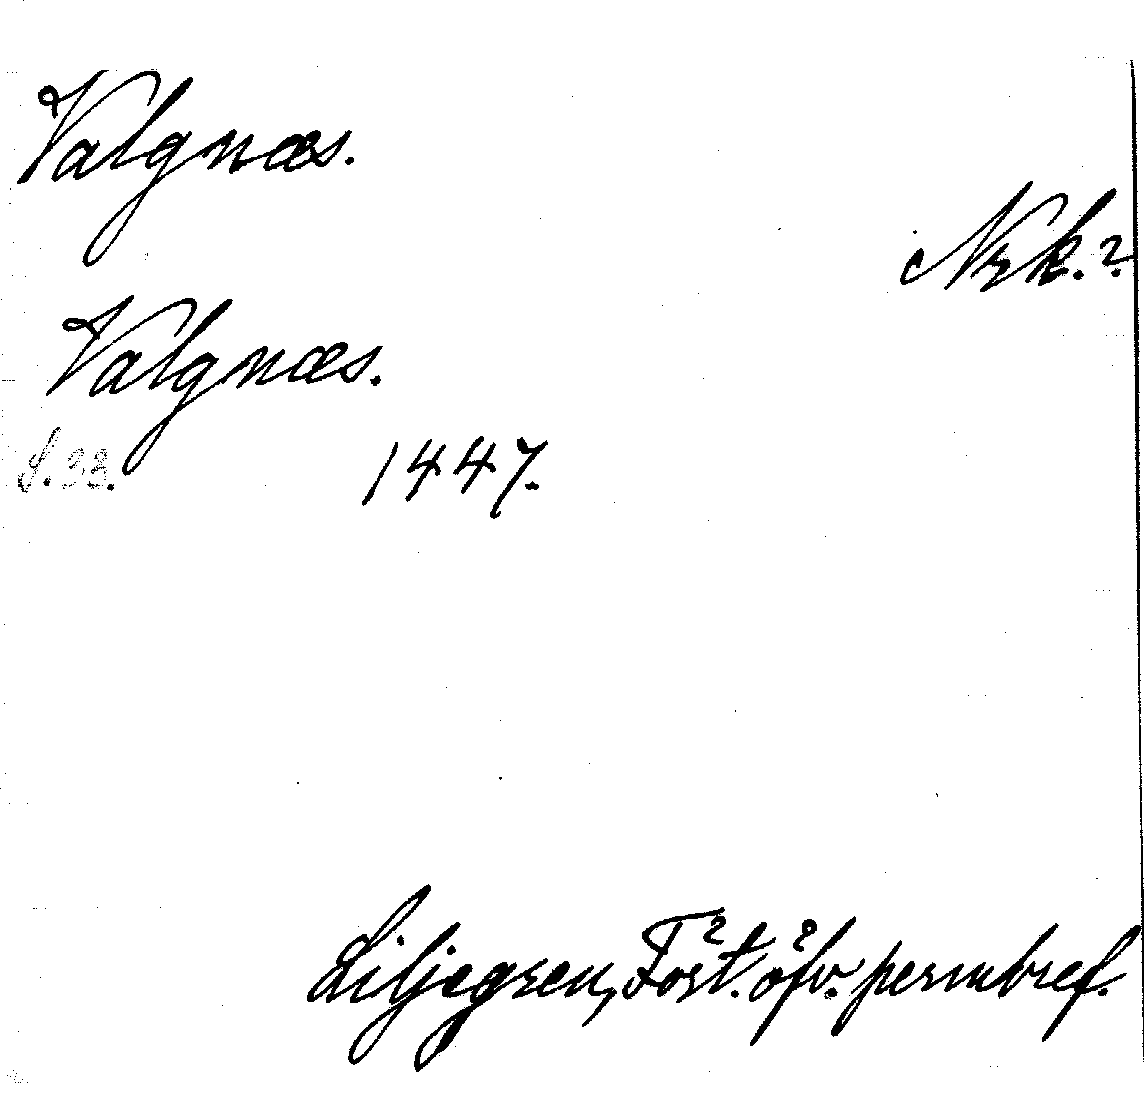 Valgnæs.
Nrk.?
Valgnæs.
S. 33.
1447.
Liljegren, Fört. öfv. permbref.